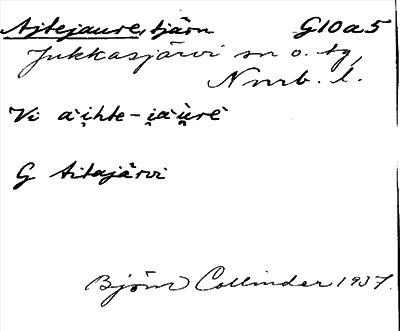 Ajtejaure, tjärn G10a5
Jukkasjärvi sn o. tg,
Nrrb. l.
Vi ài̭hte-i̭àṷrè
G Aitajärvi
Björn Collinder 1937.